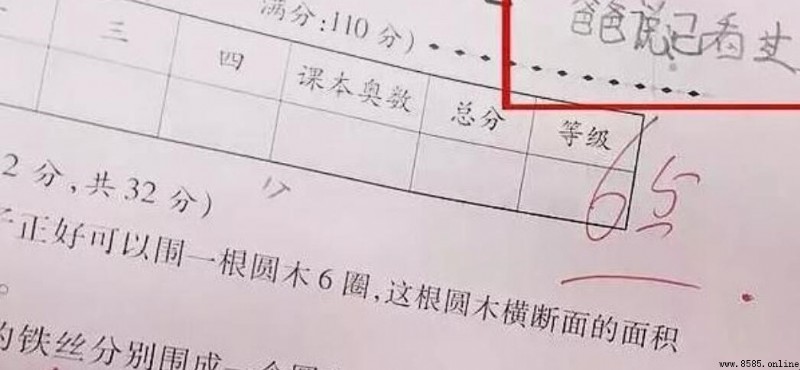 满分:110分)
爸爸说已看过
三 四 课本奥数 总分 等级
65
2分,共32分)
子正好可以围一根圆木6圈,这根圆木横断面的面积
的铁丝分别围成一个圆
www.8585.online